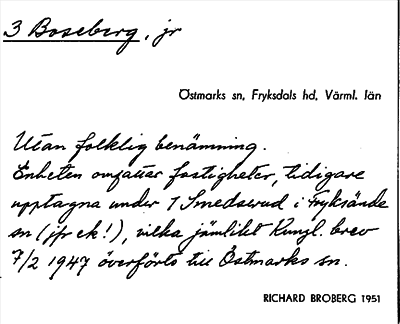 3 Boseberg, jr
Östmarks sn, Fryksdals hd, Värml. län
Utan folklig benämning.
Enheten omfattar fastigheter, tidigare
upptagna under 1 Smedserud i Fryksände
sn (jfr ek!), vilka jämlikt Kungl. brev
7/2 1947 överförts till Östmarks sn.
RICHARD BROBERG 1951